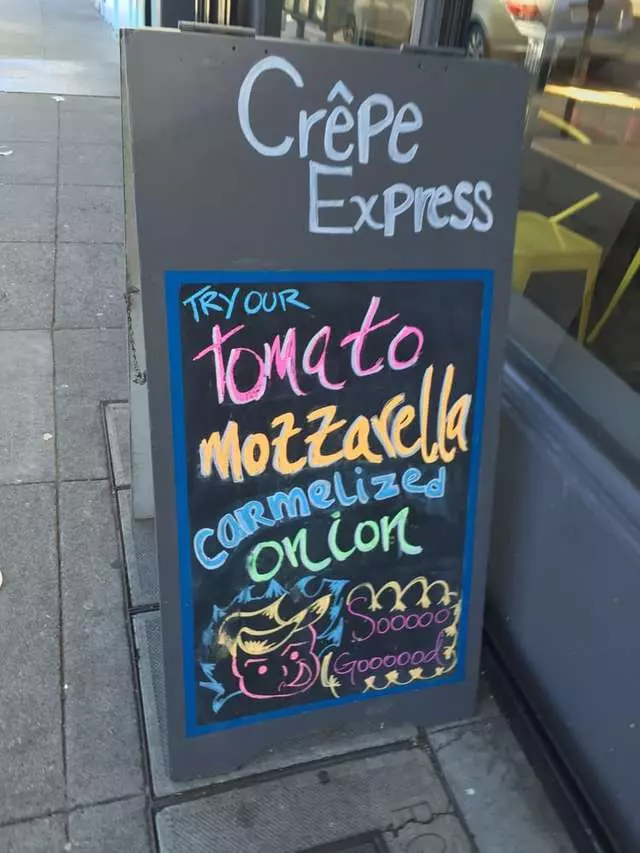 Crêpe
Express
TRY OUR
tomato
mozzarella
carmelized
onion
Sooooo
Goooood